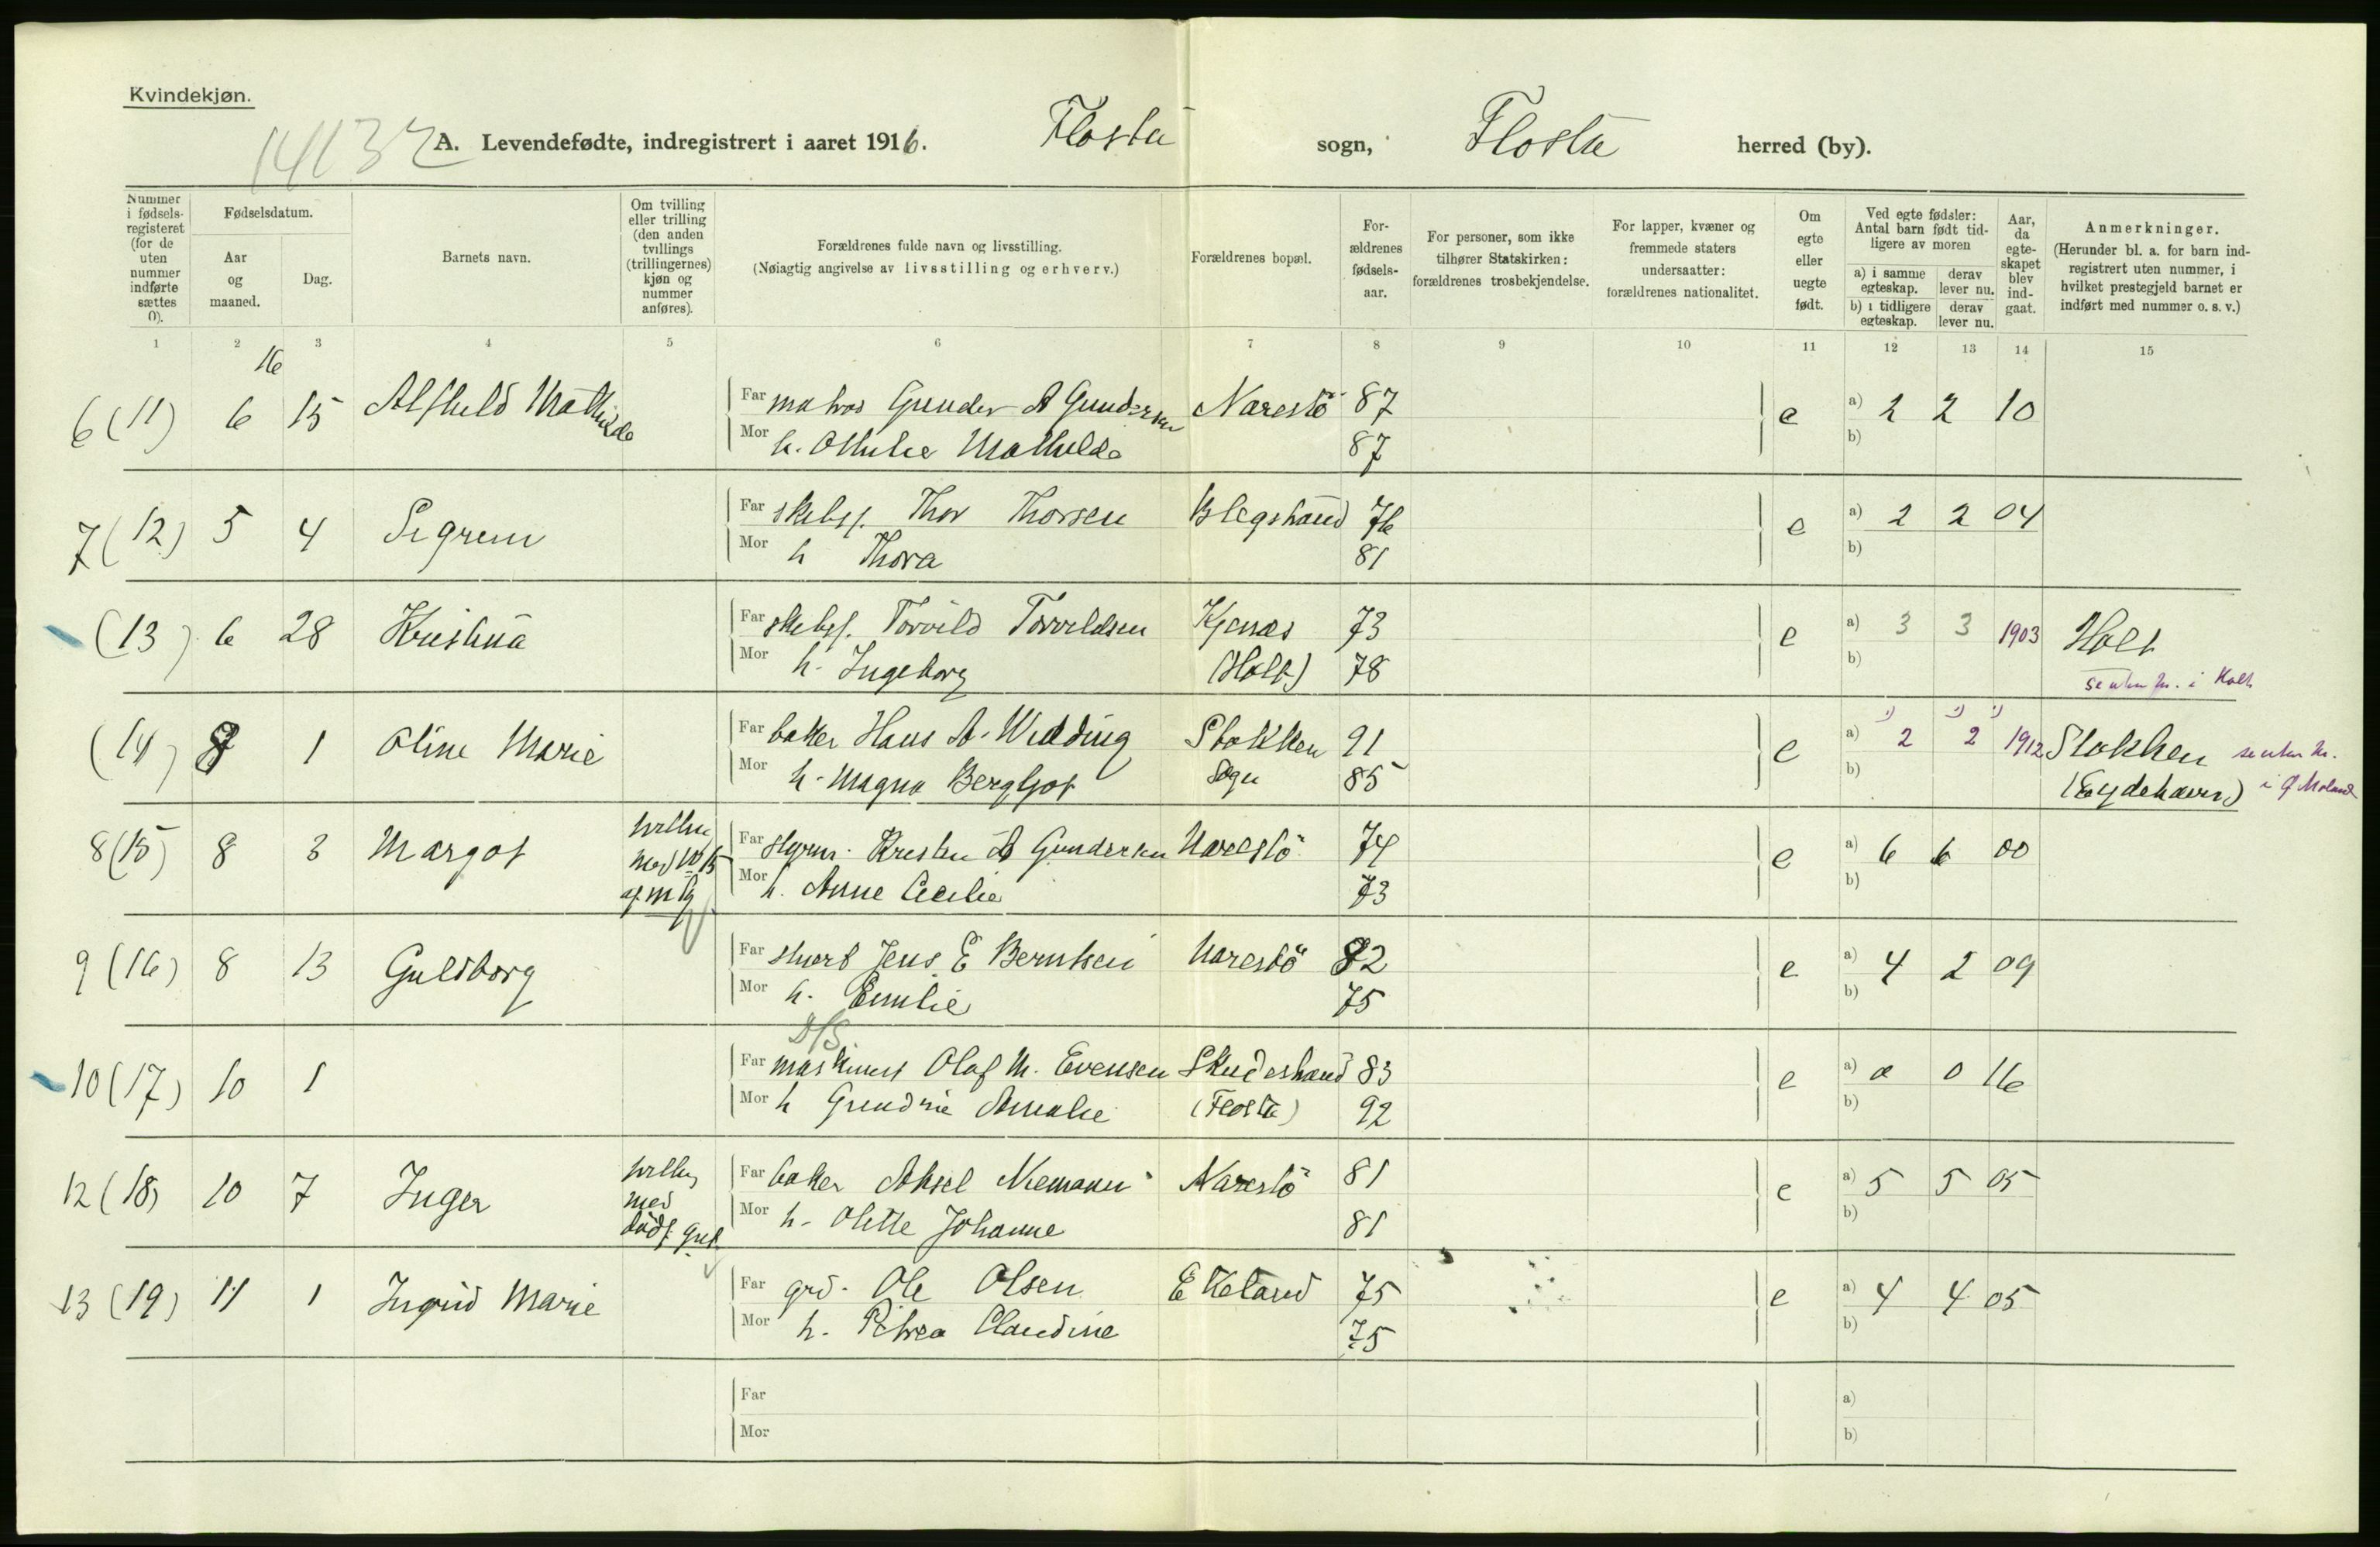 Kvindekjøn.
14132
A. Levendefødte, indregistrert i aaret 1916. Flosta sogn, Flosta herred (by).
Nummer i fødsels-registeret (for de uten nummer indførte sættes 0).
Fødselsdatum.
Aar og maaned.
Dag.
Barnets navn.
Om tvilling eller trilling (den anden tvillings (trillingernes) kjøn og nummer anføres).
Forældrenes fulde navn og livsstilling.
(Nøiagtig angivelse av livsstilling og erhverv.)
Forældrenes bopæl.
For-ældrenes fødsels-aar.
For personer, som ikke tilhører Statskirken: forældrenes trosbekjendelse.
For lapper, kvæner og fremmede staters undersaatter: forældrenes nationalitet.
Om egte eller uegte født.
Ved egte fødsler: Antal barn født tid-ligere av moren
a) i samme egteskap.
derav lever nu.
b) i tidligere egteskap.
derav lever nu.
Aar, da egte-skapet blev ind-gaat.
Anmerkninger.
(Herunder bl. a. for barn ind-registrert uten nummer, i hvilket prestegjeld barnet er indført med nummer o. s. v.)
1 2 3 4 5 6 7 8 9 10 11 12 13 14 15
16
6 (11) 6 15 Alfhild Mathilde Far matros Gunder A Gundersen Narestö 87 e a) 2 2 10
Mor h. Othilie Mathilde 87 b)
7 (12) 5 4 Sigrun Far skibsf. Thor Thorsen 76 e a) 2 2 04
Mor h Thora 81 b)
(13) 6 28 Kristina Far skibsf. Torvild Torvildsen Kjenes 73 e a) 3 3 1903 Holt
Mor h. Ingeborg (Holt) 78 b) i Holt
(14) 8 1 Oline Marie Far baker Hans A. Wedding Stokken 91 e a) 2 2 1912 Stokken
Mor h. Magna Bergljot Sogn 85 b) (Eydehavn) i Ø Moland
8 (15) 8 3 Margot tvilling med No 15 af m kj Far styrm. Kristen A Gundersen Narestö 74 e a) 6 6 00
Mor h. Anne Cecilie 73 b)
9 (16) 8 13 Guldborg Far stuert Jens E Berntsen Narestö 82 e a) 4 2 09
Mor h. Emilie 75 b)
D/S
10 (17) 10 1 Far maskinist Olaf M. Evensen 83 e a) 0 0 16
Mor h Gundine Amalie (Flosta) 92 b)
12 (18) 10 7 Inger tvilling med dødf. gut Far baker Aksel Niemann Narestö 81 e a) 5 5 05
Mor h. Olette Johanne 81 b)
13 (19) 11 1 Ingrid Marie Far grd. Ole Olsen Ekeland 75 e a) 4 4 05
Mor h. Petrea Claudine 75 b)
Far a)
Mor b)